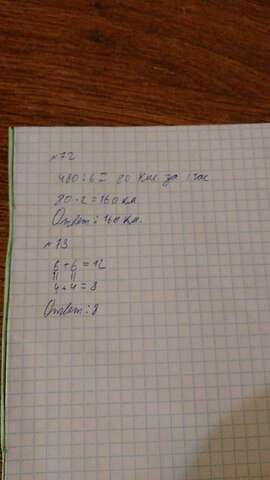 №72
480:6= 80 км за 1 час
80·2=160 км
Ответ: 160 км.
№73
6+6=12
|| ||
4+4=8
Ответ: 8